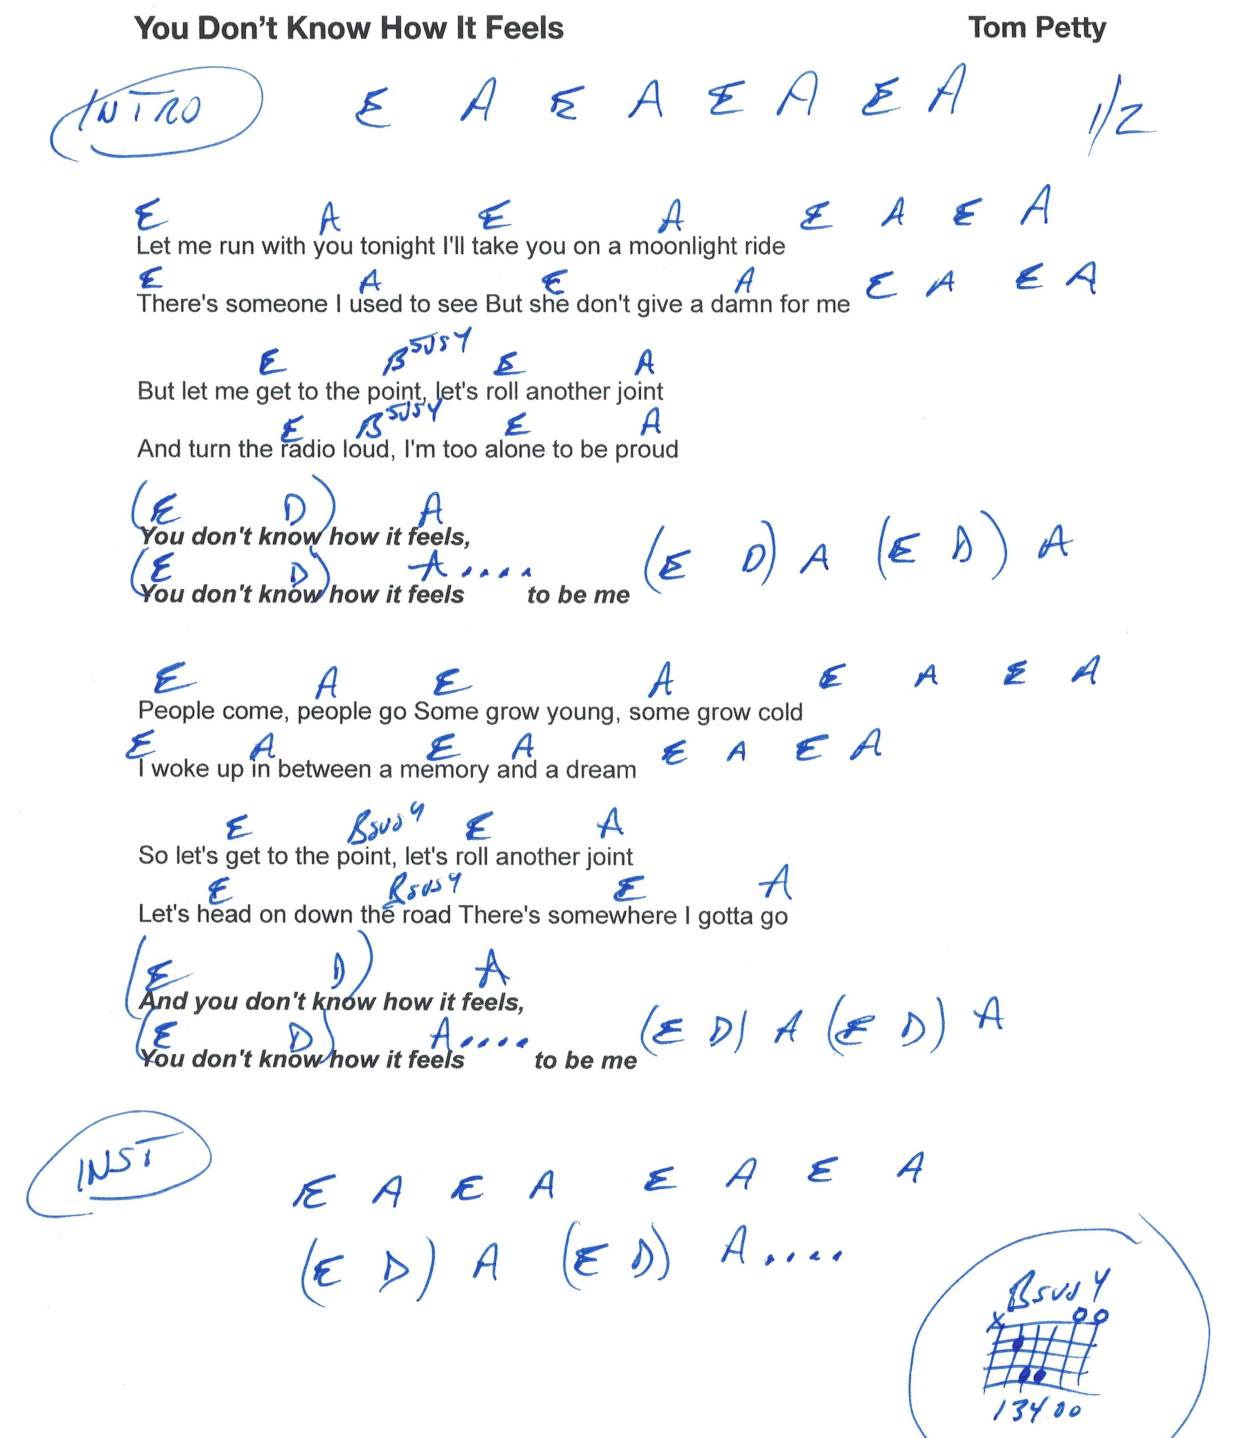 You Don't Know How It Feels Tom Petty
INTRO E A E A E A E A 1/2
E A E A E A E A
Let me run with you tonight I'll take you on a moonlight ride
E A E A E A E A
There's someone I used to see But she don't give a damn for me
E Bsus4 E A
But let me get to the point, let's roll another joint
E Bsus4 E A
And turn the radio loud, I'm too alone to be proud
(E D) A
You don't know how it feels,
(E D) A.... (E D) A (E D) A
You don't know how it feels to be me
E A E A E A E A
People come, people go Some grow young, some grow cold
E A E A E A E A
I woke up in between a memory and a dream
E Bsus4 E A
So let's get to the point, let's roll another joint
E Bsus4 E A
Let's head on down the road There's somewhere I gotta go
(E D) A
And you don't know how it feels,
(E D) A.... (E D) A (E D) A
You don't know how it feels to be me
INST E A E A E A E A
(E D) A (E D) A....
Bsus4
x oo
13400